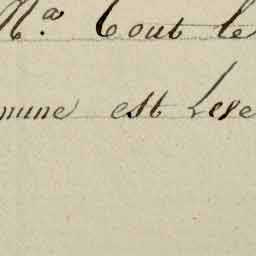 Na. Tout le
mune est Lese